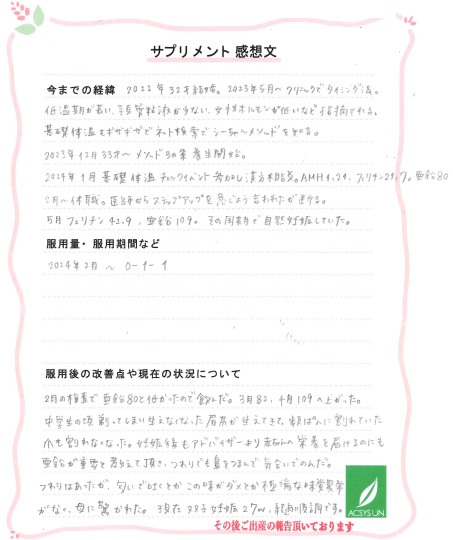 サプリメント 感想文
今までの経緯 2022年32才結婚。2023年5月〜クリニックでタイミング法。
低温期が長い、頚管粘液が少ない、女性ホルモンが低いなど指摘される。
基礎体温もギザギザでネット検索でしーちゃんメソッドを知る。
2023年12月33才〜メソッド3ヶ月栄養生開始。
2024年1月基礎体温チェックイベント参加し漢方相談。AMH1.29、フェリチン29.7。亜鉛80
2月〜休職。医師からステップアップを急ごうと言われたが避ける。
5月フェリチン42.9、亜鉛109。その周期で自然妊娠していた。
服用量・服用期間など
2024年2月 〜 0-1-1
服用後の改善点や現在の状況について
2月の検査で亜鉛80と低かったので飲んだ。3月82、4月109へ上がった。
中学生の頃剃ってしまい生えなくなった眉尻が生えてきて、割れていた
爪も割れなくなった。妊娠後もアドバイザーより赤ちゃんへ栄養を届けるのにも
亜鉛が重要と教えて頂き、つわりでも鼻をつまんで気合いでのんだ。
つわりはあったが、匂いで吐くとかこの味がダメとか極端な味覚異常
がなく、自に驚かれた。現在33才妊娠27w、経過順調です。
ACSYS UN
その後ご出産の報告頂いております